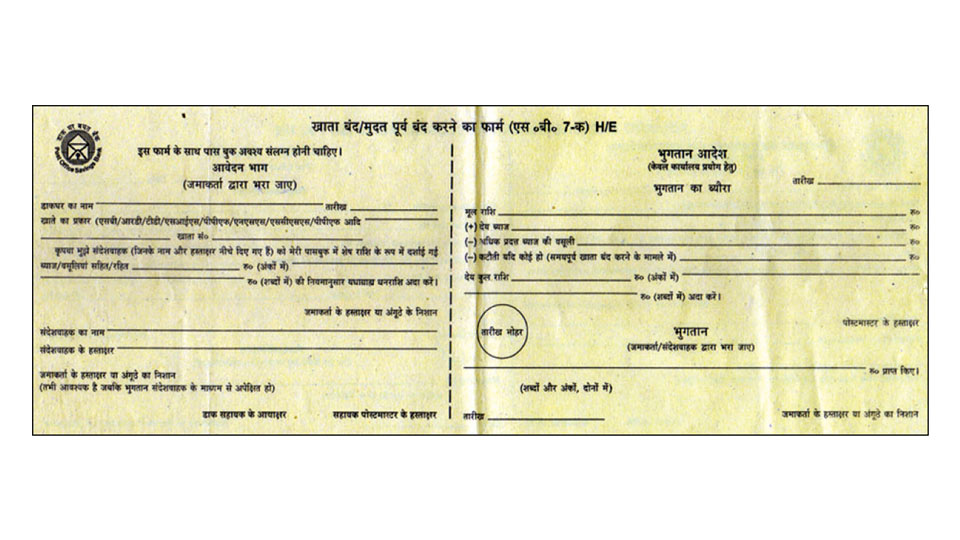 खाता बंद/मुदत पूर्व बंद करने का फार्म (एस ॰बी॰ 7-क) H/E
डाक घर बचत बैंक
Post Office Savings Bank
इस फार्म के साथ पास बुक अवश्य संलग्न होनी चाहिए।
आवेदन भाग
(जमाकर्ता द्वारा भरा जाए)
डाकघर का नाम तारीख
खाते का प्रकार (एसबी/आरडी/टीडी/एसआईएस/पीपीएफ/एनएसएस/एससीएसएस/पीपीएफ आदि
खाता सं॰
कृपया मुझे संदेशवाहक (जिनके नाम और हस्ताक्षर नीचे दिए गए हैं) को मेरी पासबुक में शेष राशि के रूप में दर्शाई गई
ब्याज/वसूलियां सहित/रहित रु० (अंकों में)
रु० (शब्दों में) की नियमानुसार यथाग्राह्य धनराशि अदा करें।
जमाकर्ता के हस्ताक्षर या अंगूठे के निशान
संदेशवाहक का नाम
संदेशवाहक के हस्ताक्षर
जमाकर्ता के हस्ताक्षर या अंगूठे का निशान
(तभी आवश्यक है जबकि भुगतान संदेशवाहक के माध्यम से अपेक्षित हो)
डाक सहायक के आद्याक्षर सहायक पोस्टमास्टर के हस्ताक्षर
भुगतान आदेश
(केवल कार्यालय प्रयोग हेतु)
तारीख
भुगतान का ब्यौरा
मूल राशि रु०
(+) देय ब्याज रु०
(–) अधिक प्रदत्त ब्याज की वसूली रु०
(–) कटौती यदि कोई हो (समयपूर्व खाता बंद करने के मामले में) रु०
देय कुल राशि रु० (अंकों में)
रु० (शब्दों में) अदा करें।
पोस्टमास्टर के हस्ताक्षर
तारीख मोहर
भुगतान
(जमाकर्ता/संदेशवाहक द्वारा भरा जाए)
रु० प्राप्त किए।
(शब्दों और अंकों, दोनों में)
तारीख जमाकर्ता के हस्ताक्षर या अंगूठे का निशान